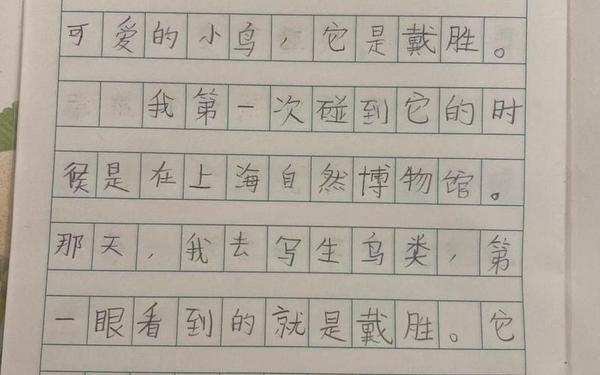 可爱的小鸟，它是戴胜。
我第一次碰到它的时
候是在上海自然博物馆。
那天，我去写生鸟类，第
一眼看到的就是戴胜。它